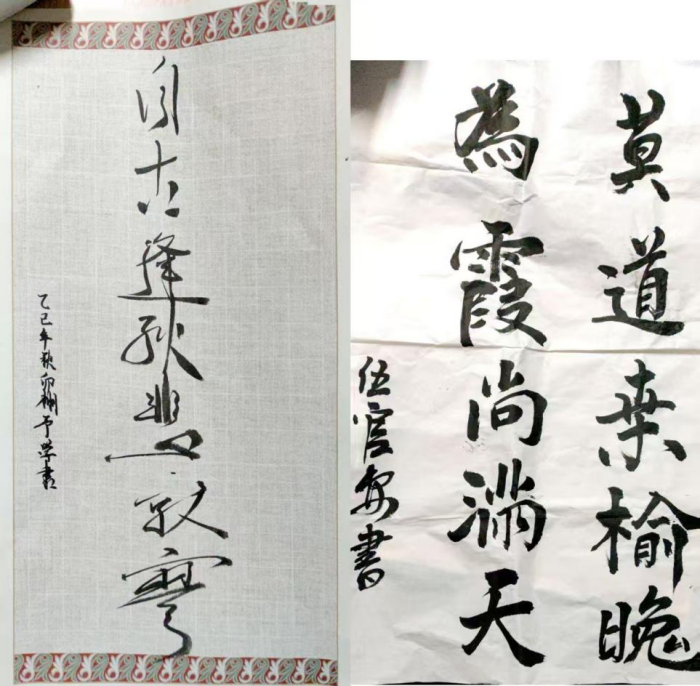 自古逢秋悲寂寥
乙巳年秋予学書
莫道桑榆晚
為霞尚满天
伍安書